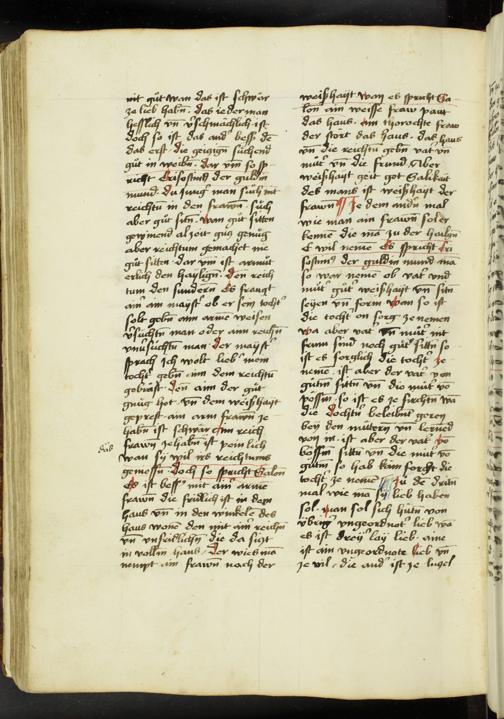 nit gůt wan das ist schwär
ze lieb habn. das iederman
hesslich vn̄ vschmächlich ist
doch so ist das and' bess' dē
das erst die geizign süchend
gůt in weibn. dar vm̄ so sp
richt Crisostim9 der guldin
mund. du jung' man sůch nit
reichtu in den frawen. sůch
aber gůt sitn. wan gůt sitten
gewinend al zeit gůz genůg
aber reichtum gemachet nie
gůt sitten. dar vm̄ ist armůt
erlich den haylign. den reich
tum den sundern. Es fraugt
ain' ain mayst' ob er sein tocht'
solt gebn aim arme weisen
man oder aim reichn
man. der mayst'
sprach ich wolt lieb' mein
tocht' gebn aim dem reichtu
gebräst. den aim der gůt
gnůg het. vn̄ dem weißhayt
geprest. ain arm frawn ze
habn ist schwär. ain reich
frawn ze habn ist peinlich
wan sy wil irs reichtums
geniessn. Doch so spricht Salon
Es ist bess' mit ain' arme
frawn die fridlich ist in dem
haus vn̄ in den winckele des
haus wone den mit ain' reichn
vn̄ vnfridlichn die da sizt
in vollm haus. Der wies man
nempt ain frawn nach der
das
weißhayt wan es spricht Sa
lon ain weisse fraw paut
das haus. Ain thorochte fraw
der stört das haus. das haus
vn̄ die reichtu gebn vat' vn̄
můt' vn̄ die frund. Aber
weißhayt geit got. Sälikait
des mans ist weißhayt der
frawen. Ze dem andn mal
wie man ain frawn sol er
kenne die man zu der hailgn
E wil neme. Es spricht Cri
sostim9 der guldin mund
so war neme ob vat' vnd
můt' gůt weißhayt vn̄ sitn
seyen vn̄ form. Wan so ist
die tocht' on sorg ze nemen
wa aber vat' vn̄ můt' nit
frum sind noch gůt sittn so
ist es sorglich die tocht' ze
neme. ist aber der vat' von
gutin sittn vn̄ die můt' vō
possin. so ist es ze fürchtn
die dochtu belibint geren
bey den můtern vn̄ lerned
von in. ist aber der vat' vō
bössin sittn vn̄ die můt' vō
gůtin. so hab kain sorg die
tocht' ze neme. Zu dē dritn
mal wie man sy lieb haben
sol. man sol sich hütn von
übrig' vngeordnot' lieb wā
es ist dreyr lay lieb. aine
ist ain vngeordnote lieb vn̄
ze vil. die and' ist ze lützel